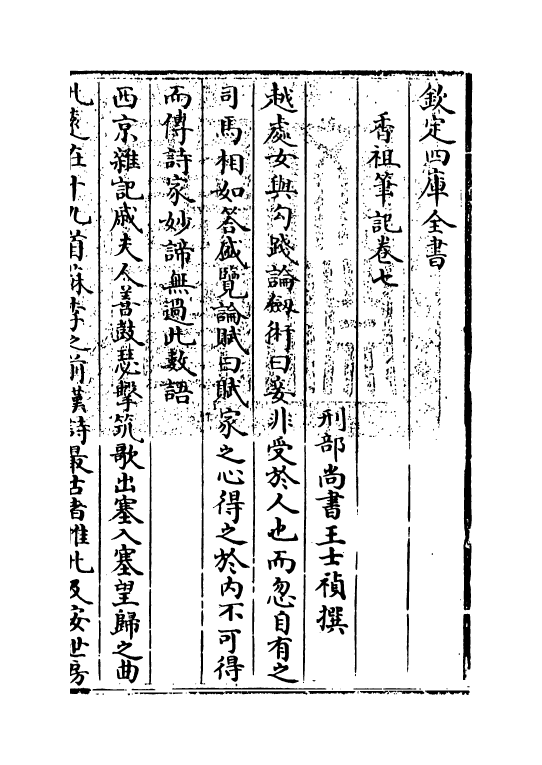 欽定四庫全書
香祖筆記卷七
刑部尚書王士禎撰
越處女與勾踐論劍術曰妾非受於人也而忽自有之
司馬相如答盛覽論賦曰賦家之心得之於內不可得
而傳詩家妙諦無過此數語
西京雜記戚夫人善鼓瑟擊筑歌出塞入塞望歸之曲
此遠在十九首蘇李之前漢詩最古者惟此及安世房